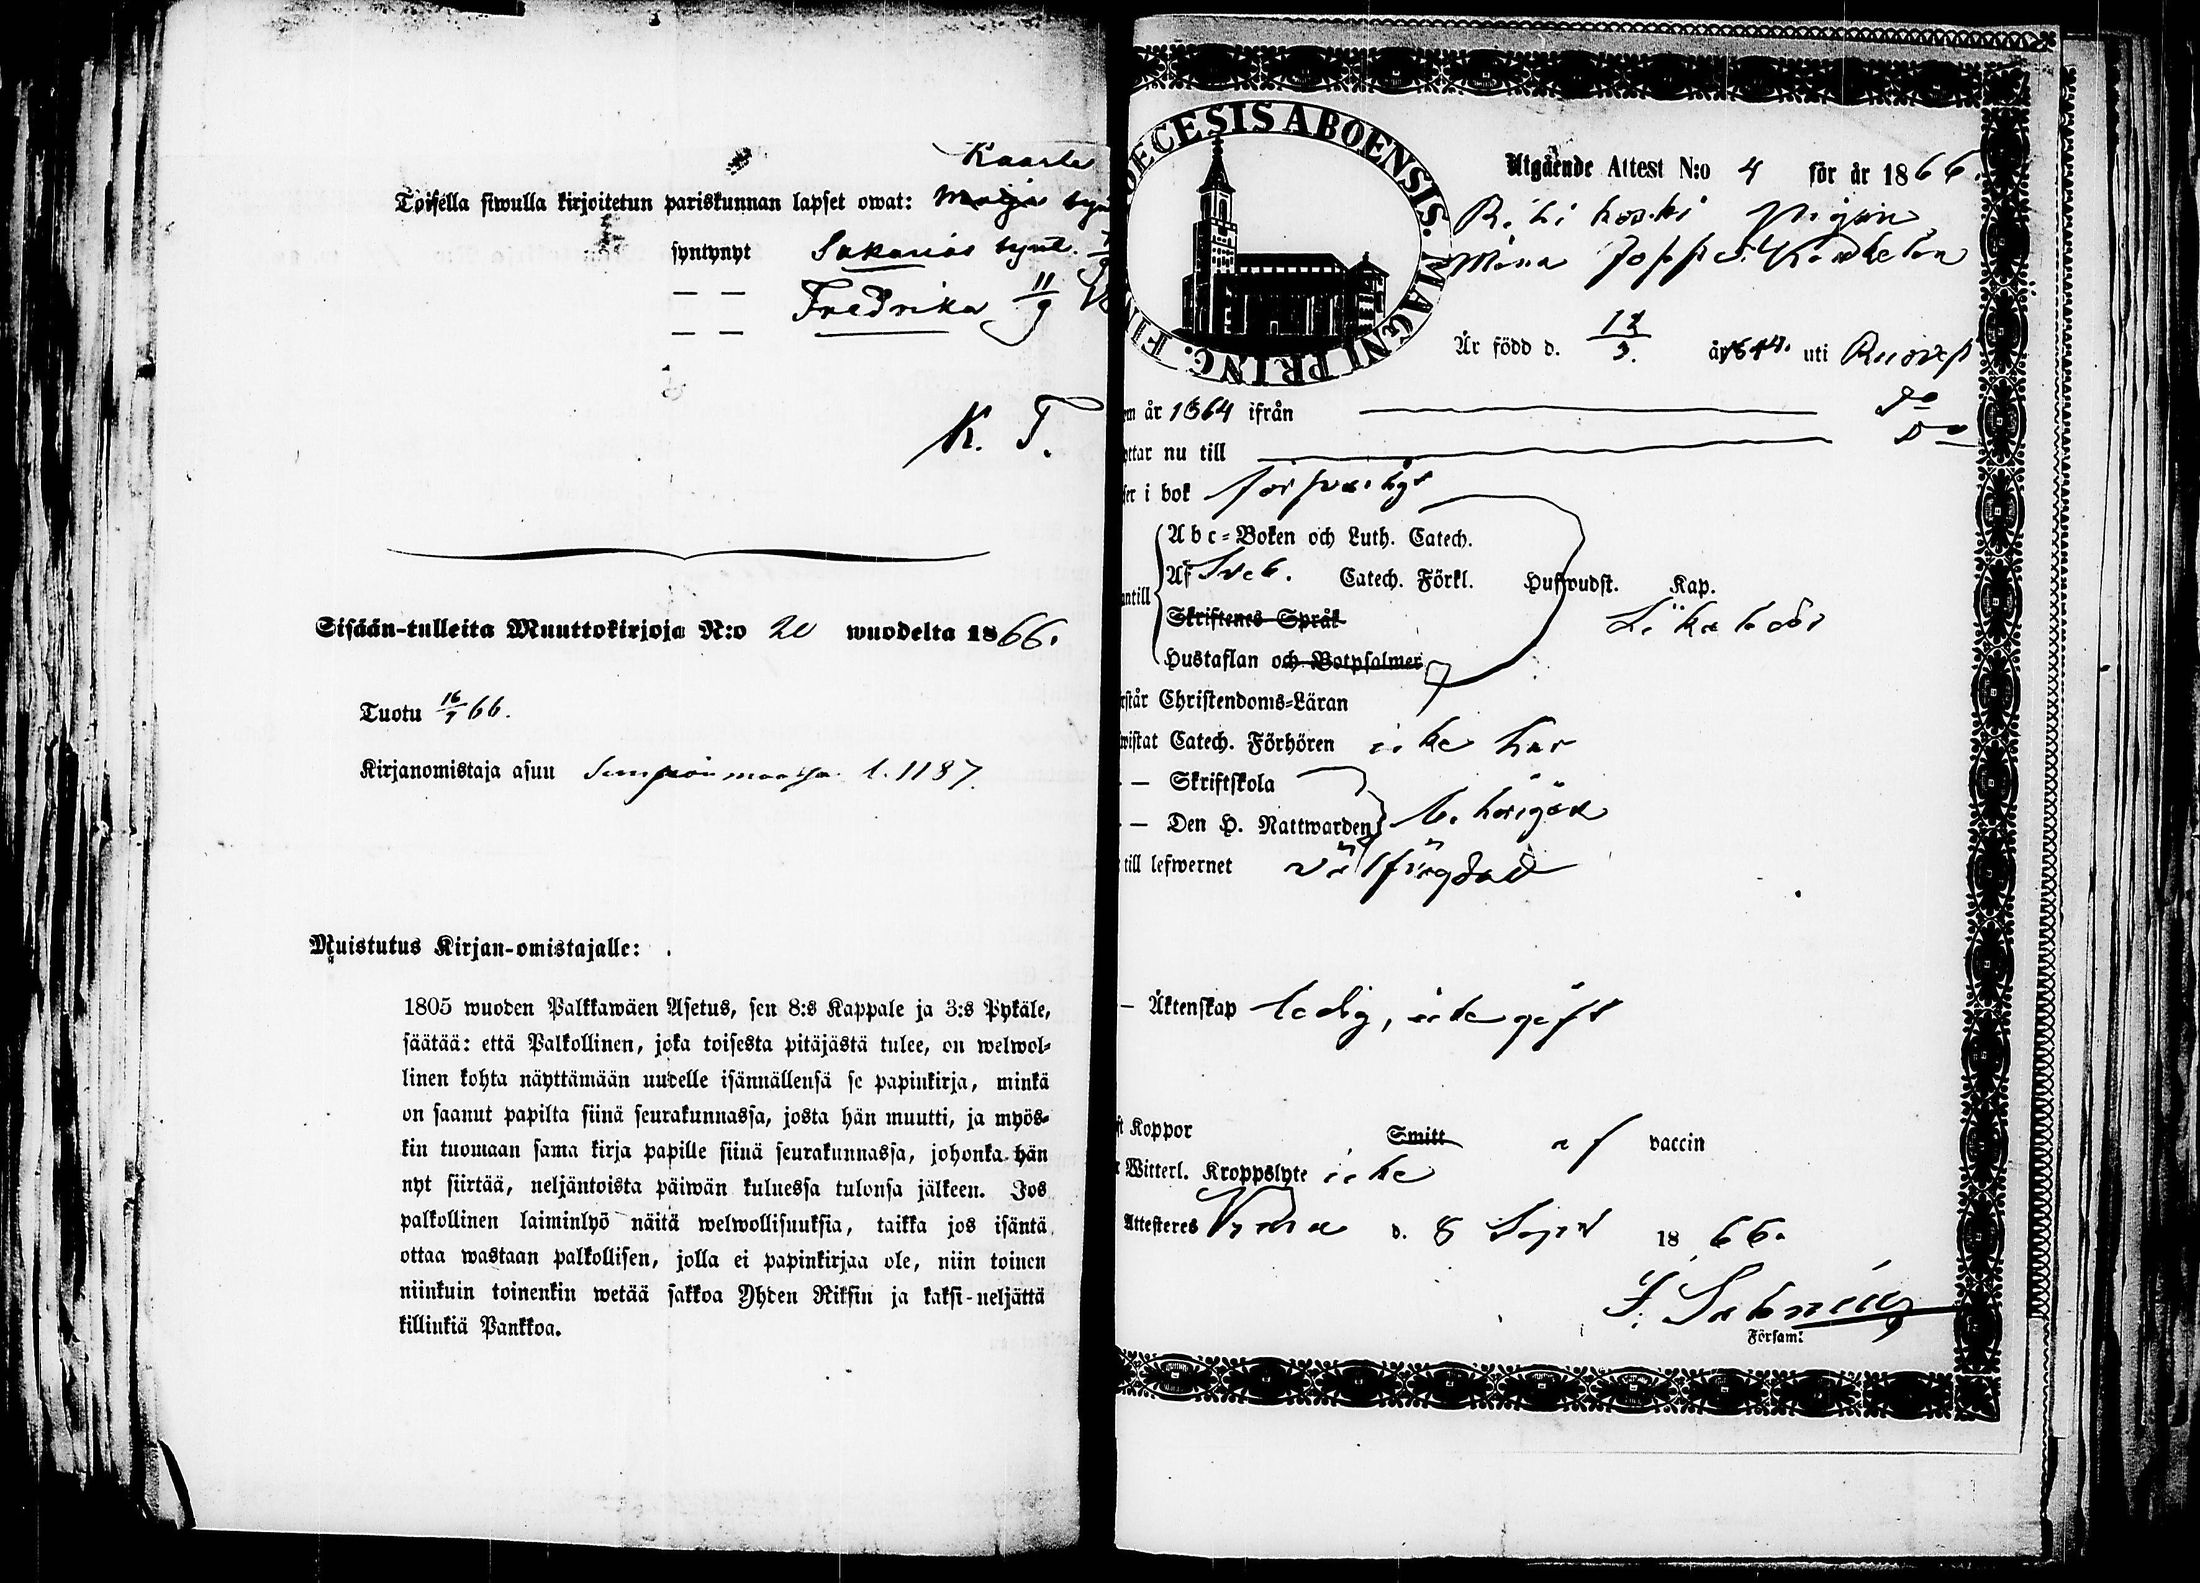 Kaarle
Toisella siwulla kirjoitetun pariskunnan lapset owat: Maija syn
syntynyt Sakarias synt.
— — Fredrika 11/9
— —
K. T.
Sisään-tulleita Muuttokirjoja N:o 20 wuodelta 1866.
Tuotu 16/9 66.
Kirjanomistaja asuu l. 1187.
Muistutus Kirjan-omistajalle:
1805 wuoden Palkkawäen Asetus, sen 8:s Kappale ja 3:s Pykäle,
säätää: että Palkollinen, joka toisesta pitäjästä tulee, on welwol-
linen kohta näyttämään uudelle isännällensä se papinkirja, minkä
on saanut papilta siinä seurakunnassa, josta hän muutti, ja myös-
kin tuomaan sama kirja papille siinä seurakunnassa, johonka hän
nyt siirtää, neljäntoista päiwän kuluessa tulonsa jälkeen. Jos
palkollinen laiminlyö näitä welwollisuuksia, taikka jos isäntä
ottaa wastaan palkollisen, jolla ei papinkirjaa ole, niin toinen
niinkuin toinenkin wetää sakkoa Yhden Riksin ja kaksi-neljättä
killinkiä Pankkoa.
DIOECESIS ABOENSIS. MAGNI PRINC. FIN
Utgående Attest N:o 4 för år 1866.
Rihikoski Pigan
Mina
Är född d. 12/3. år 1844. uti
em år 1864 ifrån — Do
yttar nu till — Do
ser i bok försvarligt
antill
Abc-Boken och Luth. Catech.
Af Sveb. Catech. Förkl. Hufwudst. Kap.
Skriftenes Språk
Likaledes
Hustaflan och Botpsalmer
rstår Christendoms-Läran
wistat Catech. Förhören icke har
— Skriftskola
— Den H. Nattwarden begår
till lefwernet välfrägdad
— Äktenskap ledig, icke gift
ft Koppor Smitt af vaccin
r Witterl. Kroppslyte icke
Attesteres Virma d. 8 Sept 1866.
Försam: